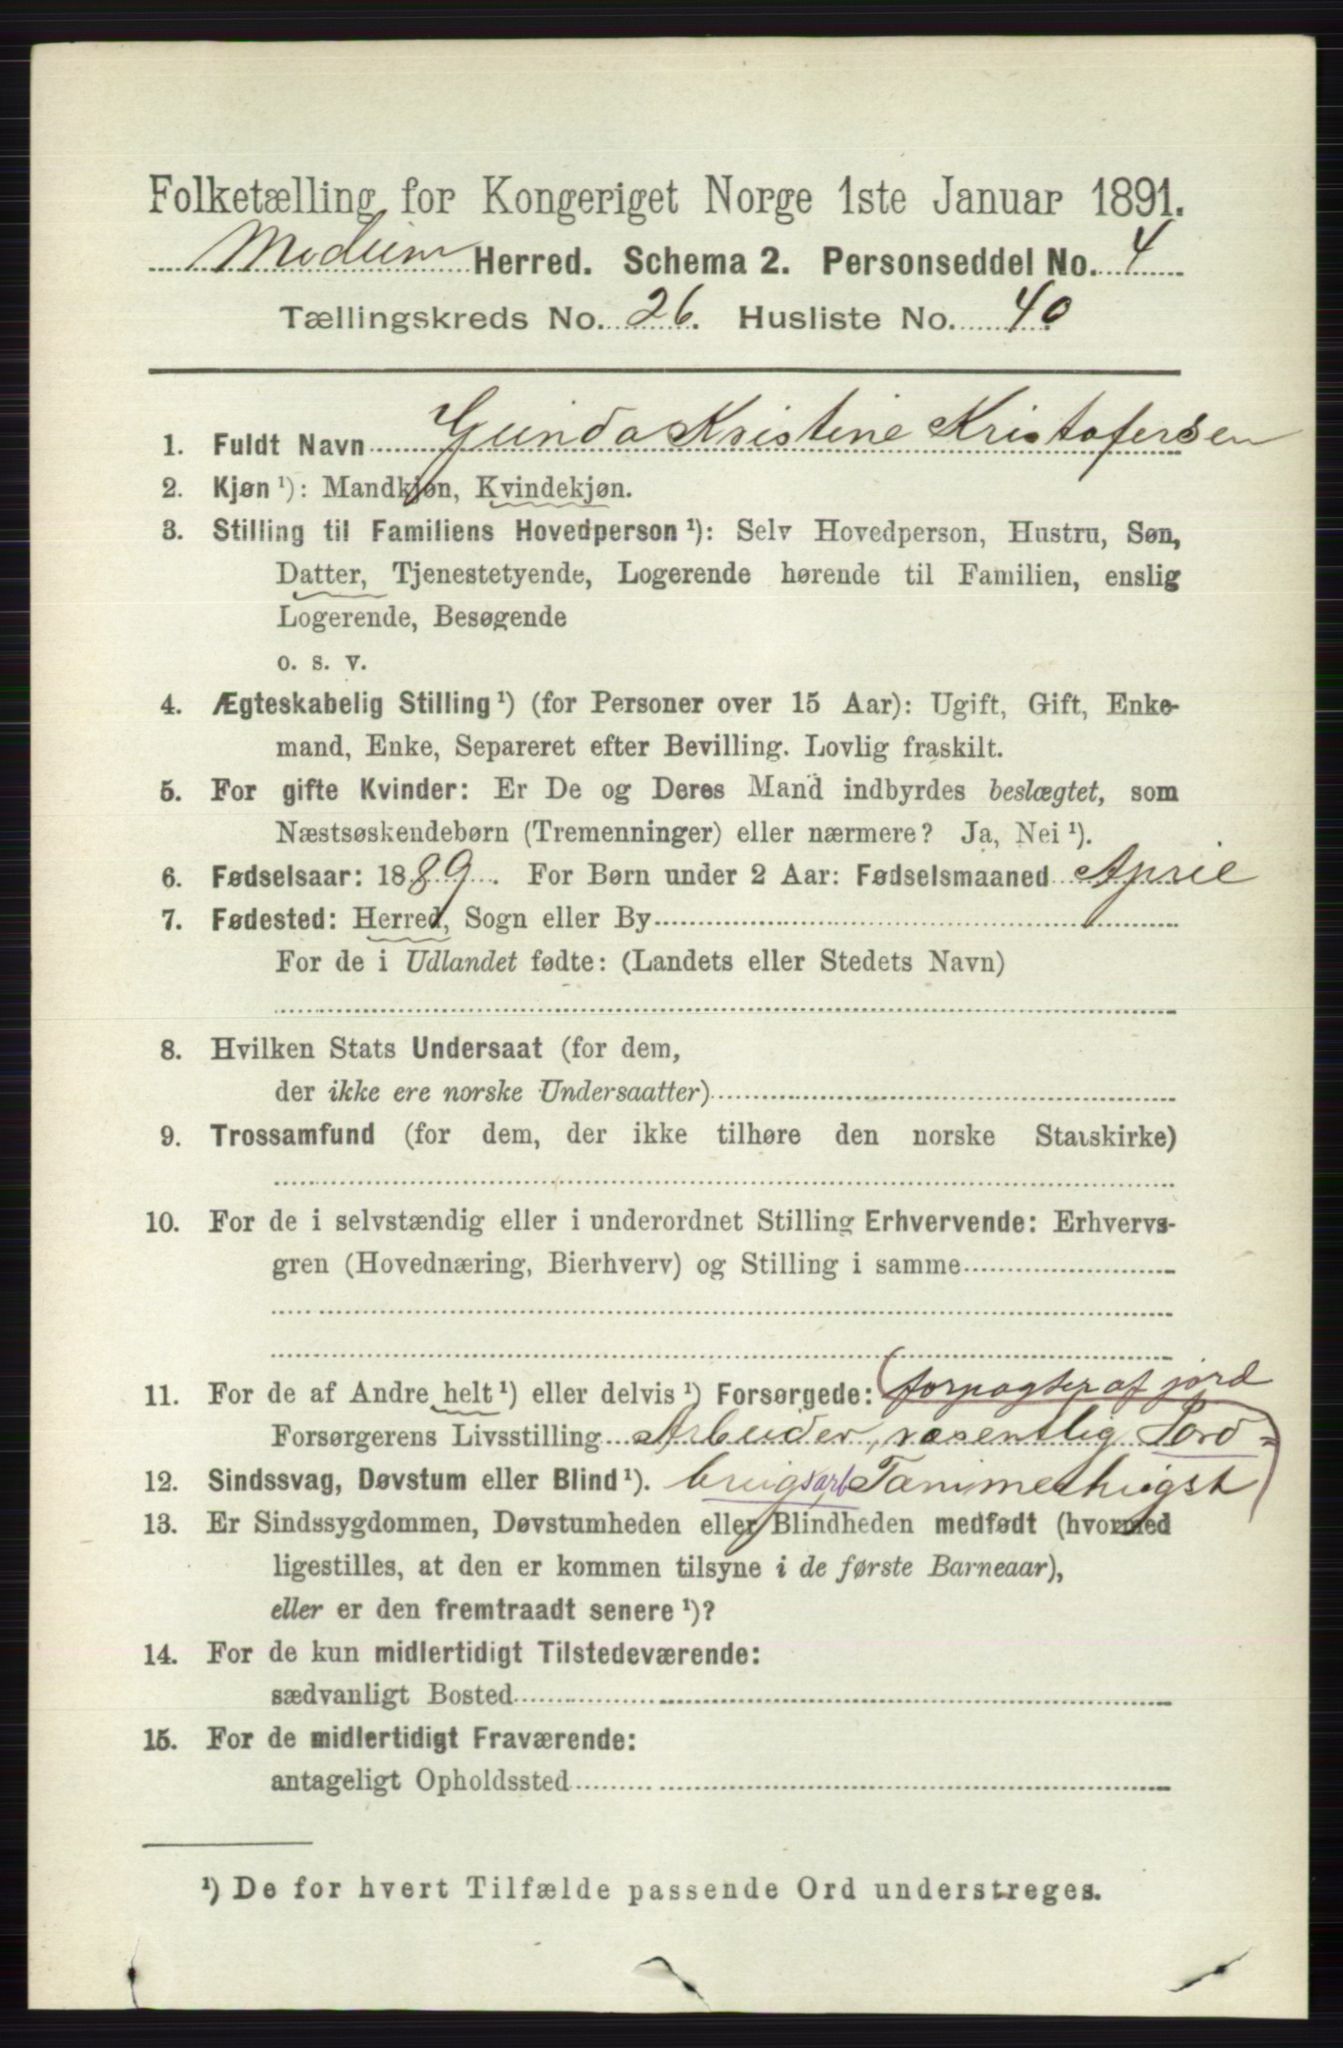 Folketælling for Kongeriget Norge 1ste Januar 1891.
Modum Herred. Schema 2. Personseddel No. 4
Tællingskreds No. 26. Husliste No. 40
1. Fuldt Navn Gunda Kristine Kristofersen
2. Kjøn ¹): Mandkjøn, Kvindekjøn.
3. Stilling til Familiens Hovedperson ¹): Selv Hovedperson, Hustru, Søn,
Datter, Tjenestetyende, Logerende hørende til Familien, enslig
Logerende, Besøgende
o. s. v.
4. Ægteskabelig Stilling ¹) (for Personer over 15 Aar): Ugift, Gift, Enke-
mand, Enke, Separeret efter Bevilling. Lovlig fraskilt.
5. For gifte Kvinder: Er De og Deres Mand indbyrdes beslægtet, som
Næstsøskendebørn (Tremenninger) eller nærmere? Ja, Nei ¹).
6. Fødselsaar: 1889. For Børn under 2 Aar: Fødselsmaaned April
7. Fødested: Herred, Sogn eller By
For de i Udlandet fødte: (Landets eller Stedets Navn)
8. Hvilken Stats Undersaat (for dem,
der ikke ere norske Undersaatter)
9. Trossamfund (for dem, der ikke tilhøre den norske Statskirke)
10. For de i selvstændig eller i underordnet Stilling Erhvervende: Erhvervs-
gren (Hovednæring, Bierhverv) og Stilling i samme
11. For de af Andre helt ¹) eller delvis ¹) Forsørgede: (forpagter af jord
Forsørgerens Livsstilling Arbeider, væsentlig Jord-
12. Sindssvag, Døvstum eller Blind ¹). brugsarb Tømmerhugst)
13. Er Sindssygdommen, Døvstumheden eller Blindheden medfødt (hvormed
ligestilles, at den er kommen tilsyne i de første Barneaar),
eller er den fremtraadt senere ¹)?
14. For de kun midlertidigt Tilstedeværende:
sædvanligt Bosted
15. For de midlertidigt Fraværende:
antageligt Opholdssted
¹) De for hvert Tilfælde passende Ord understreges.